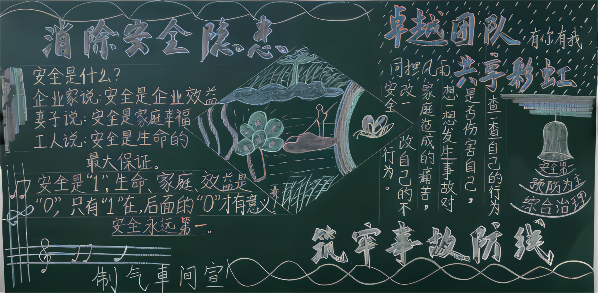 消除安全隐患
安全是什么?
企业家说:安全是企业效益
妻子说:安全是家庭幸福
工人说:安全是生命的
最大保证。
安全是“1”,生命、家庭、效益是
“0”,只有“1”在,后面的“0”才有意义!
安全永远第一。
制气車间宣
卓越团队 有你有我
同担风雨 共享彩虹
查一查自己的行为
是否伤害自己,
想一想发生事故对
家庭造成的痛苦,
改一改自己的不
安全行为。
安全第一
预防为主
综合治理
筑牢事故防线